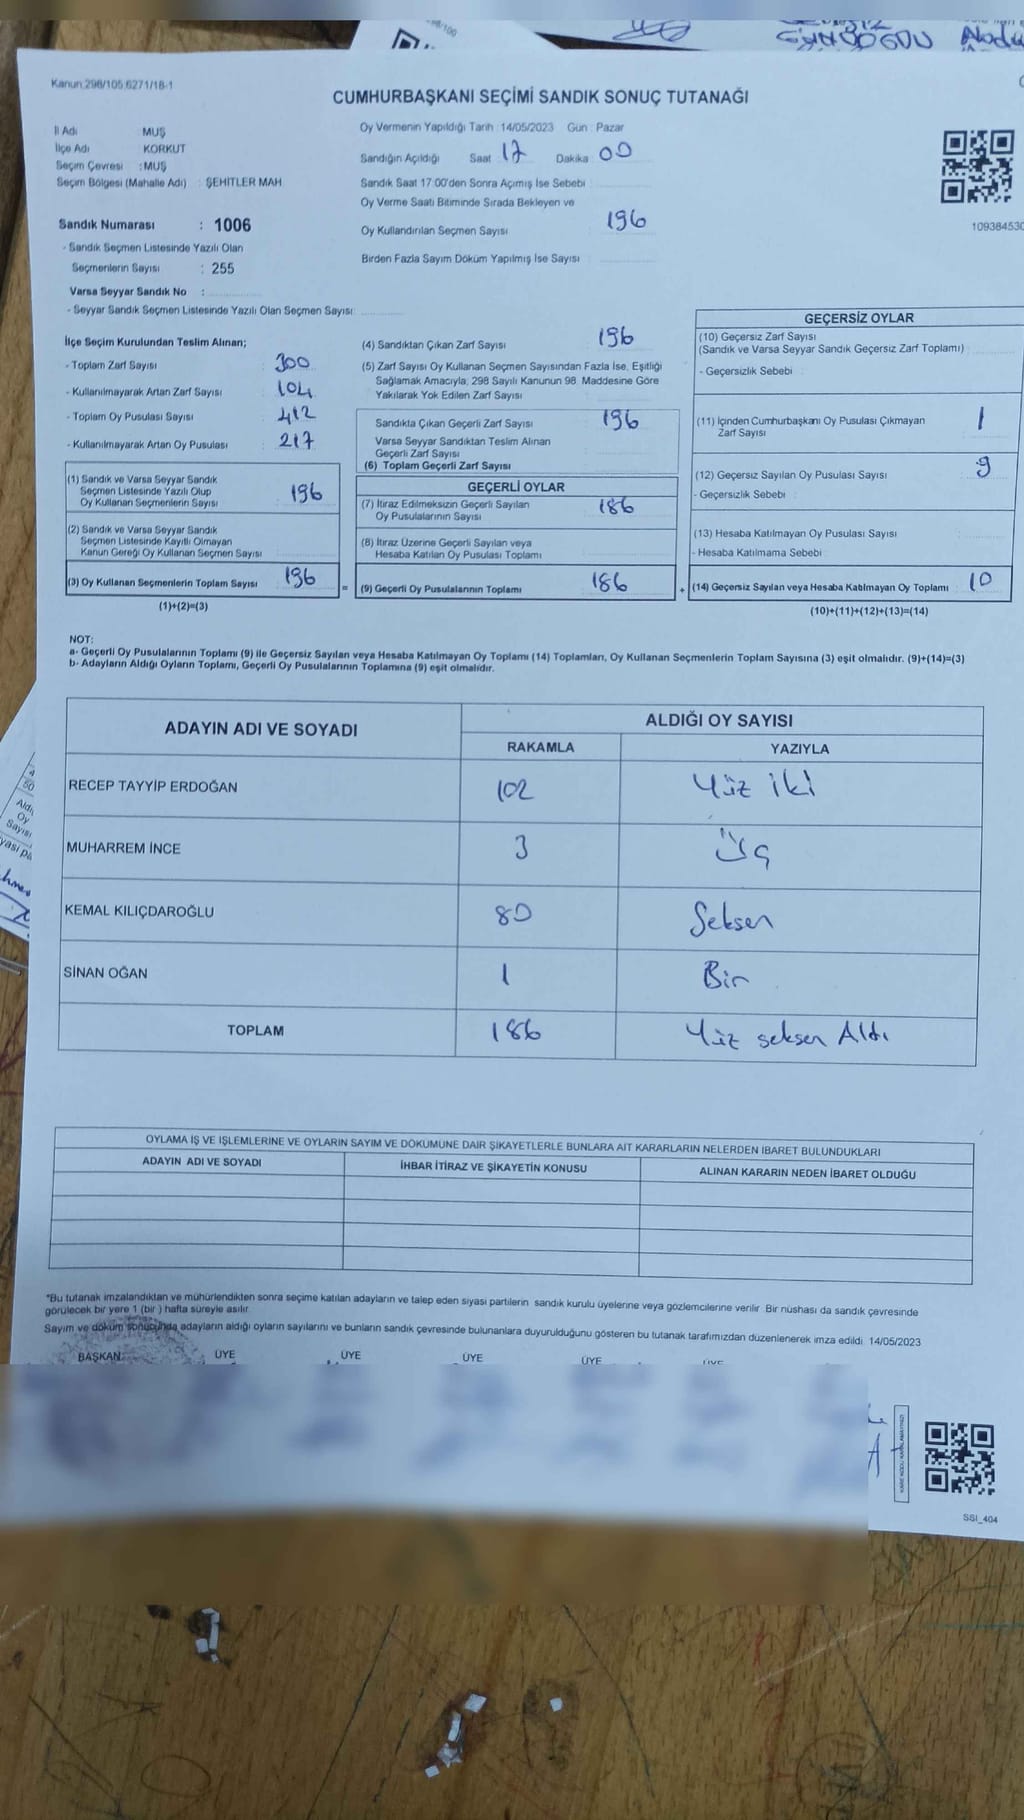 GÜNDOGDU
Kanun:298/105,6271/18-1
CUMHURBAŞKANI SEÇİMİ SANDIK SONUÇ TUTANAĞI
İl Adı MUŞ
İlçe Adı KORKUT
Seçim Çevresi :MUŞ
Seçim Bölgesi (Mahalle Adı) : ŞEHİTLER MAH
Sandık Numarası : 1006
- Sandık Seçmen Listesinde Yazılı Olan
Seçmenlerin Sayısı : 255
Varsa Seyyar Sandık No :
- Seyyar Sandık Seçmen Listesinde Yazılı Olan Seçmen Sayısı:
Oy Vermenin Yapıldığı Tarih :14/05/2023 Gün : Pazar
Sandığın Açıldığı Saat 17 Dakika 00
Sandık Saat 17:00'den Sonra Açımış İse Sebebi
Oy Verme Saati Bitiminde Sırada Bekleyen ve
Oy Kullandırılan Seçmen Sayısı 196
Birden Fazla Sayım Döküm Yapılmış İse Sayısı
109384530
İlçe Seçim Kurulundan Teslim Alınan;
- Toplam Zarf Sayısı 300
- Kullanılmayarak Artan Zarf Sayısı 104
- Toplam Oy Pusulası Sayısı 412
- Kullanılmayarak Artan Oy Pusulası 217
(1) Sandık ve Varsa Seyyar Sandık
Seçmen Listesinde Yazılı Olup
Oy Kullanan Seçmenlerin Sayısı 196
(2) Sandık ve Varsa Seyyar Sandık
Seçmen Listesinde Kayıtlı Olmayan
Kanun Gereği Oy Kullanan Seçmen Sayısı
(3) Oy Kullanan Seçmenlerin Toplam Sayısı 196
(1)+(2)=(3)
(4) Sandıktan Çıkan Zarf Sayısı 196
(5) Zarf Sayısı Oy Kullanan Seçmen Sayısından Fazla İse, Eşitliği
Sağlamak Amacıyla, 298 Sayılı Kanunun 98. Maddesine Göre
Yakılarak Yok Edilen Zarf Sayısı
Sandıkta Çıkan Geçerli Zarf Sayısı 196
Varsa Seyyar Sandıktan Teslim Alınan
Geçerli Zarf Sayısı
(6) Toplam Geçerli Zarf Sayısı
GEÇERLİ OYLAR
(7) İtiraz Edilmeksizin Geçerli Sayılan
Oy Pusulalarının Sayısı 186
(8) İtiraz Üzerine Geçerli Sayılan veya
Hesaba Katılan Oy Pusulası Toplamı
= (9) Geçerli Oy Pusulalarının Toplamı 186
GEÇERSİZ OYLAR
(10) Geçersiz Zarf Sayısı
(Sandık ve Varsa Seyyar Sandık Geçersiz Zarf Toplamı)
- Geçersizlik Sebebi
(11) İçinden Cumhurbaşkanı Oy Pusulası Çıkmayan
Zarf Sayısı 1
(12) Geçersiz Sayılan Oy Pusulası Sayısı 9
- Geçersizlik Sebebi
(13) Hesaba Katılmayan Oy Pusulası Sayısı
- Hesaba Katılmama Sebebi
+ (14) Geçersiz Sayılan veya Hesaba Katılmayan Oy Toplamı 10
(10)+(11)+(12)+(13)=(14)
NOT:
a- Geçerli Oy Pusulalarının Toplamı (9) ile Geçersiz Sayılan veya Hesaba Katılmayan Oy Toplamı (14) Toplamları, Oy Kullanan Seçmenlerin Toplam Sayısına (3) eşit olmalıdır. (9)+(14)=(3)
b- Adayların Aldığı Oyların Toplamı, Geçerli Oy Pusulalarının Toplamına (9) eşit olmalıdır.
ADAYIN ADI VE SOYADI ALDIĞI OY SAYISI
RAKAMLA YAZIYLA
RECEP TAYYİP ERDOĞAN 102 Yüz iki
MUHARREM İNCE 3 Üç
KEMAL KILIÇDAROĞLU 80 Seksen
SİNAN OĞAN 1 Bir
TOPLAM 186 Yüz seksen Altı
OYLAMA İŞ VE İŞLEMLERİNE VE OYLARIN SAYIM VE DÖKÜMÜNE DAİR ŞİKAYETLERLE BUNLARA AİT KARARLARIN NELERDEN İBARET BULUNDUKLARI
ADAYIN ADI VE SOYADI İHBAR İTİRAZ VE ŞİKAYETİN KONUSU ALINAN KARARIN NEDEN İBARET OLDUĞU
*Bu tutanak imzalandıktan ve mühürlendikten sonra seçime katılan adayların ve talep eden siyasi partilerin sandık kurulu üyelerine veya gözlemcilerine verilir. Bir nüshası da sandık çevresinde
görülecek bir yere 1 (bir ) hafta süreyle asılır.
Sayım ve döküm sonucunda adayların aldığı oyların sayılarını ve bunların sandık çevresinde bulunanlara duyurulduğunu gösteren bu tutanak tarafımızdan düzenlenerek imza edildi. 14/05/2023
BAŞKAN ÜYE ÜYE ÜYE ÜYE ÜYE
SSI_404